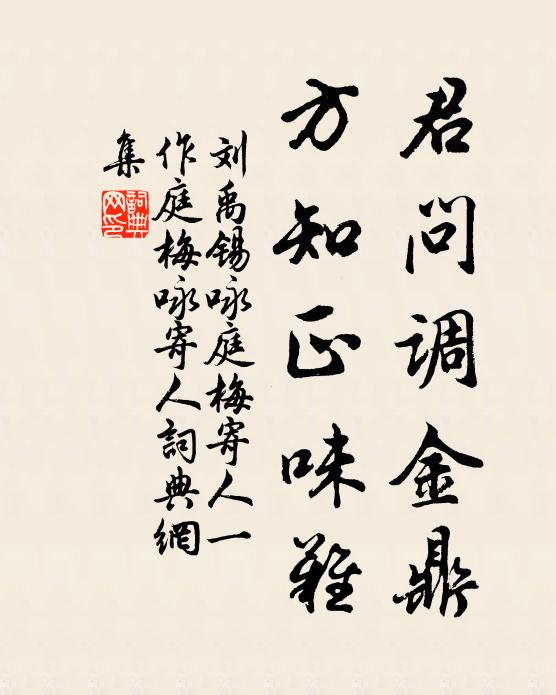 君问调金鼎
方知正味难
刘禹锡咏庭梅寄人一
作庭梅咏寄人詞典網
集
詞典网印